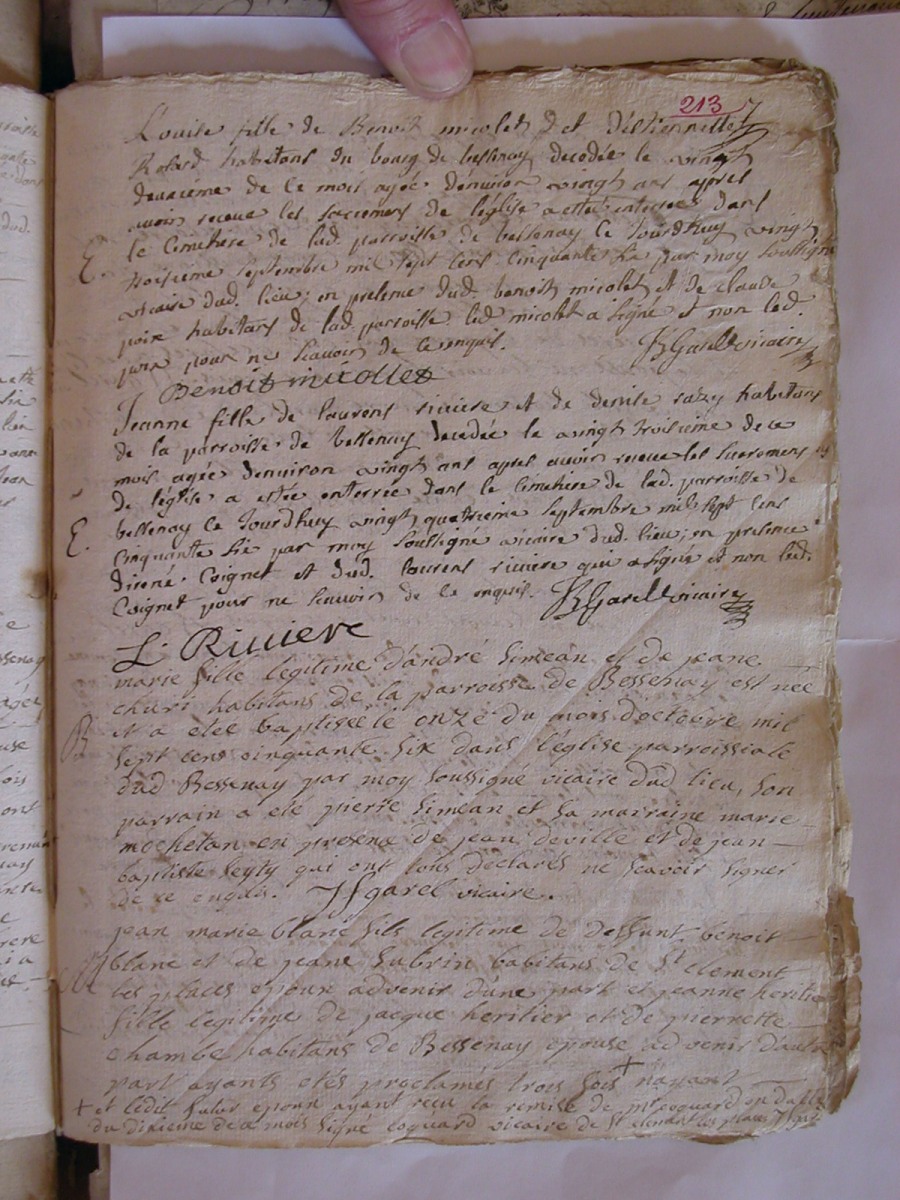 213
Louise fille de Benoit micolet et d'Estiennette
Rolard habitans du bourg de bessenay decedée le vingt
deuxieme de ce mois agée denviron vingt ans apres
avoir receue les sacremens de l'eglise a estée enterrée dans
E. le cimethere de lad. parroisse de bessenay ce jourdhuy vingt
troisieme septembre mil sept cens cinquante six par moy soussigné
vicaire dud. lieu, en presence dud. benoit micolet et de claude
habitans de lad. parroisse led micolet a signé et non led.
pour ne scavoir de ce enquis. JB Garel vicaire
Benoit micollet
Jeanne fille de laurens riviere et de denise razy habitans
de la parroisse de bessenay decedée le vingt troisieme de ce
mois agée denviron vingt ans apres avoir receue les sacremens
de l'eglise a estée enterrée dans le cimethere de lad. parroisse de
E. bessenay ce jourdhuy vingt quatrieme septembre mil sept cens
cinquante six par moy soussigné vicaire dud. lieu, en presence
d'irené Coignet et dud. laurens riviere qui a signé et non led.
Coignet pour ne scavoir de ce enquis. JB Garel vicaire
L. Riviere
marie fille legitime d'andré Simean et de jeane
habitans de la parroisse de Bessenay est née
B et a etée baptisée le onze du mois d'octobre mil
sept cens cinquante six dans l'église parroissiale
dud Bessenay par moy soussigné vicaire dud lieu, son
parrain a été pierre Simean et sa marraine marie
mochetan en presence de jean deville et de jean
baptiste Seyty qui ont tous declarés ne scavoir signer
de ce enquis. J garel vicaire.
jean marie blanc fils legitime de deffunt benoit
M blanc et de jeane Subrin habitans de St clement
les places epoux advenir d'une part et jeanne heritier
fille legitime de jacque heritier et de pierrette
chambe habitans de Bessenay epouse advenir d'autre
part ayants etés proclamés trois fois + nayant
+ et ledit futur epoux ayant recu la remise de mr coquard en datte
du dixieme de ce mois signé coquard vicaire de St clement les places